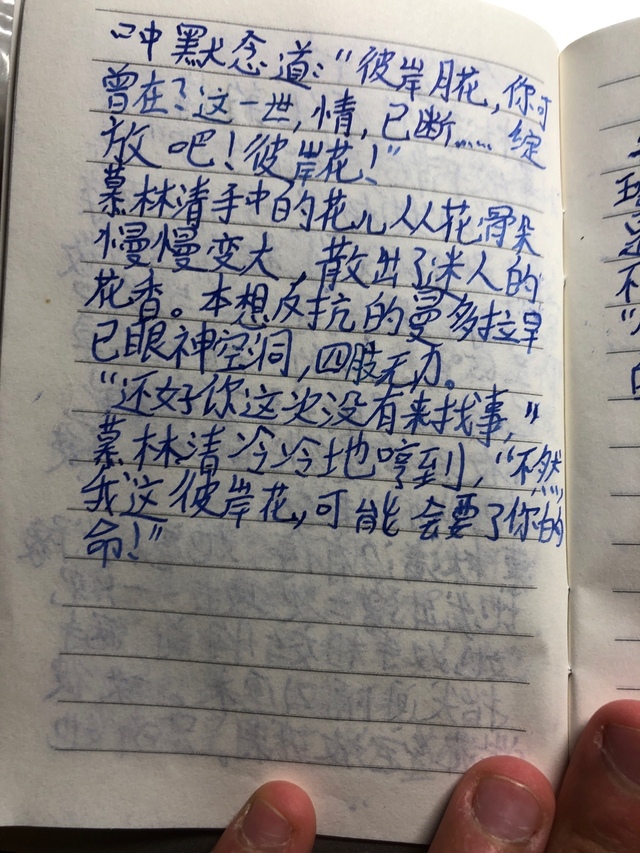 口中默念道："彼岸月花，你可
曾在？这一世，情，已断……绽
放吧！彼岸花！"
慕林清手中的花儿从花骨朵
慢慢变大，散出了迷人的
花香。本想反抗的曼多拉早
已眼神空洞，四肢无力。
"还好你这次没有来找事，"
慕林清冷冷地哼到，"不然，
我这彼岸花，可能会要了你的
命！"
不